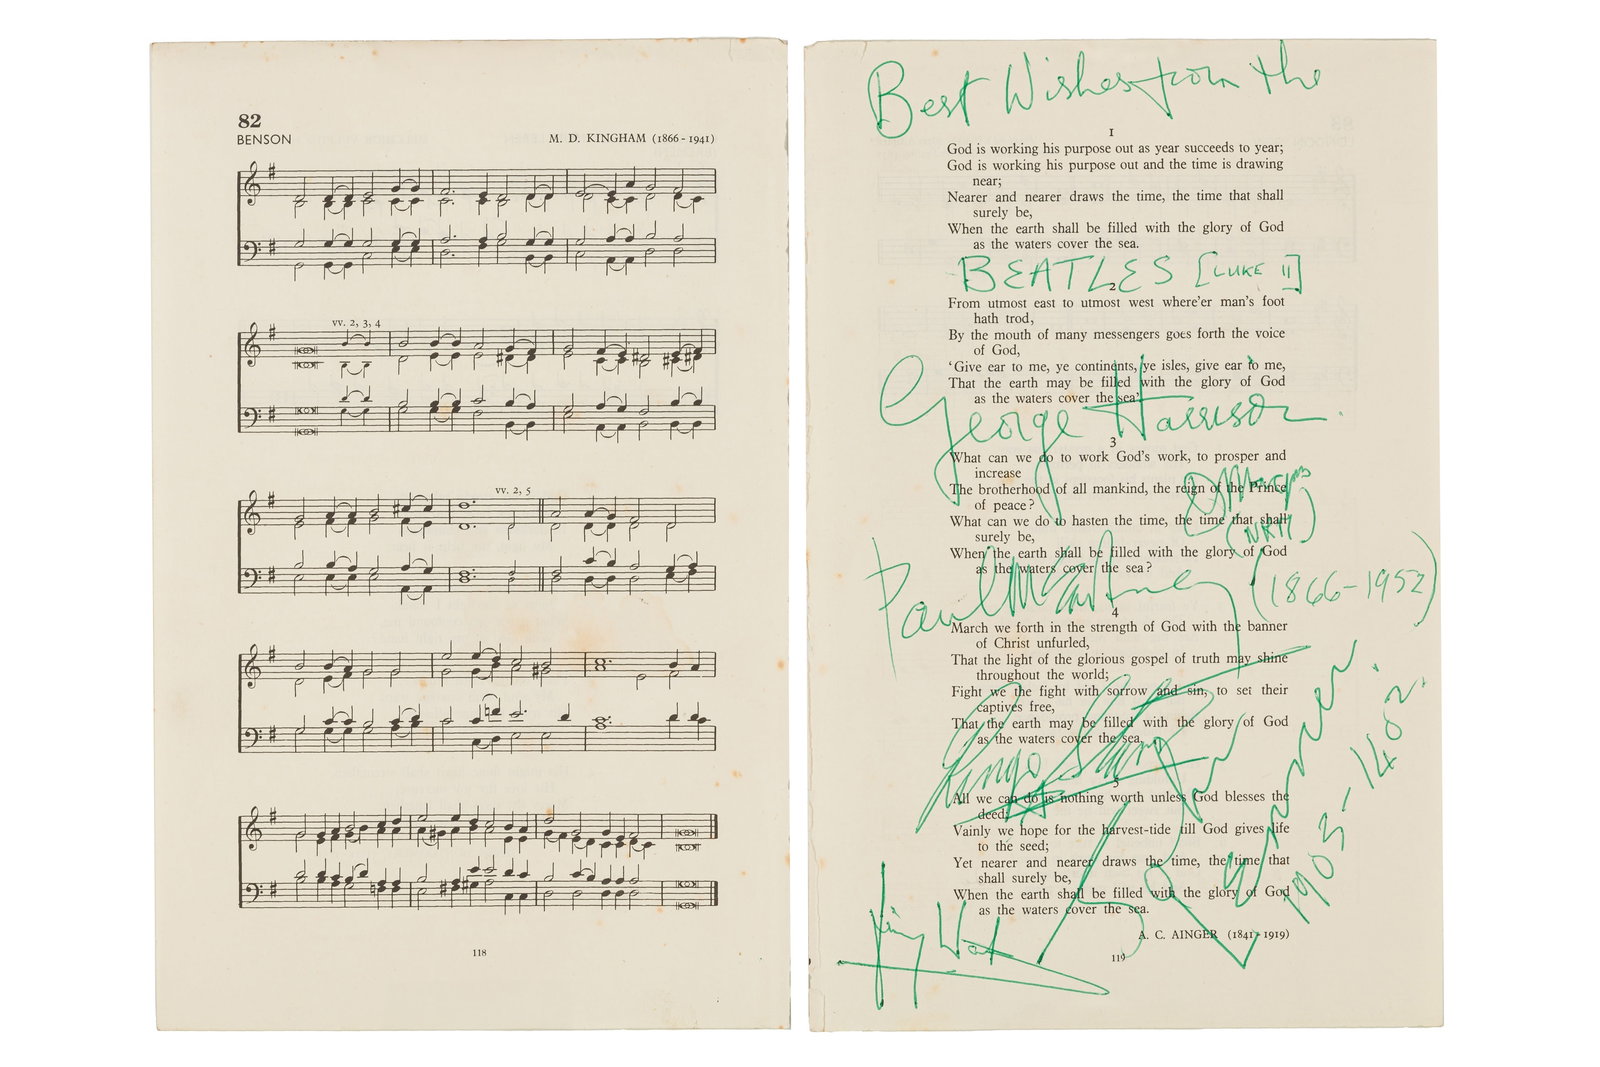 82
BENSON M. D. KINGHAM (1866-1941)
vv. 2, 3, 4
vv. 2, 5
118
Best Wishes from the
1
God is working his purpose out as year succeeds to year;
God is working his purpose out and the time is drawing
near;
Nearer and nearer draws the time, the time that shall
surely be,
When the earth shall be filled with the glory of God
as the waters cover the sea.
BEATLES [LUKE II]
2
From utmost east to utmost west where'er man's foot
hath trod,
By the mouth of many messengers goes forth the voice
of God,
'Give ear to me, ye continents, ye isles, give ear to me,
That the earth may be filled with the glory of God
as the waters cover the sea'.
George Harrison.
3
What can we do to work God's work, to prosper and
increase
The brotherhood of all mankind, the reign of the Prince
of peace?
What can we do to hasten the time, the time that shall
surely be,
When the earth shall be filled with the glory of God
as the waters cover the sea?
Paul McCartney (1866-1952)
4
March we forth in the strength of God with the banner
of Christ unfurled,
That the light of the glorious gospel of truth may shine
throughout the world;
Fight we the fight with sorrow and sin, to set their
captives free,
That the earth may be filled with the glory of God
as the waters cover the sea.
Ringo Starr
5
All we can do is nothing worth unless God blesses the
deed;
Vainly we hope for the harvest-tide till God gives life
to the seed;
Yet nearer and nearer draws the time, the time that
shall surely be,
When the earth shall be filled with the glory of God
as the waters cover the sea.
John Lennon
1905-1402.
A. C. AINGER (1841-1919)
119